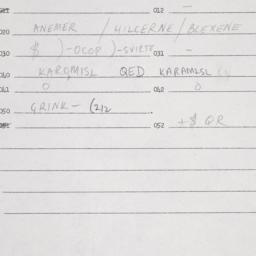 012 —
020 ANEMER / HILCERNE / BLEXENE
030 $ ) -OCOP ) -SVIRTE 031 —
040 KARQMISL QED KARAMZSL
041 0 042 0
050 GRINK — (212
052 +$ QR